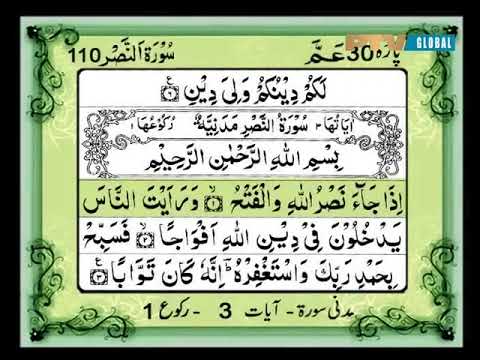 پارہ 30 عَمَّ
سُوۡرَۃُ النَّصۡر 110
GLOBAL
لَكُمۡ دِيۡنُكُمۡ وَلِىَ دِيۡنِ ۶ ع
اٰیَاتُہَا ۳ سُوۡرَةُ النَّصۡرِ مَدَنِيَّةٌ رُکُوۡعُہَا ۱
بِسۡمِ اللهِ الرَّحۡمٰنِ الرَّحِيۡمِ
اِذَا جَآءَ نَصۡرُ اللهِ وَالۡفَتۡحُ ۱ وَرَاَيۡتَ النَّاسَ
يَدۡخُلُوۡنَ فِىۡ دِيۡنِ اللهِ اَفۡوَاجًا ۲ فَسَبِّحۡ
بِحَمۡدِ رَبِّكَ وَاسۡتَغۡفِرۡهُ ؕ اِنَّهٗ كَانَ تَوَّابًا ۳ ع
مدنی سورۃ - آیات 3 - رکوع 1